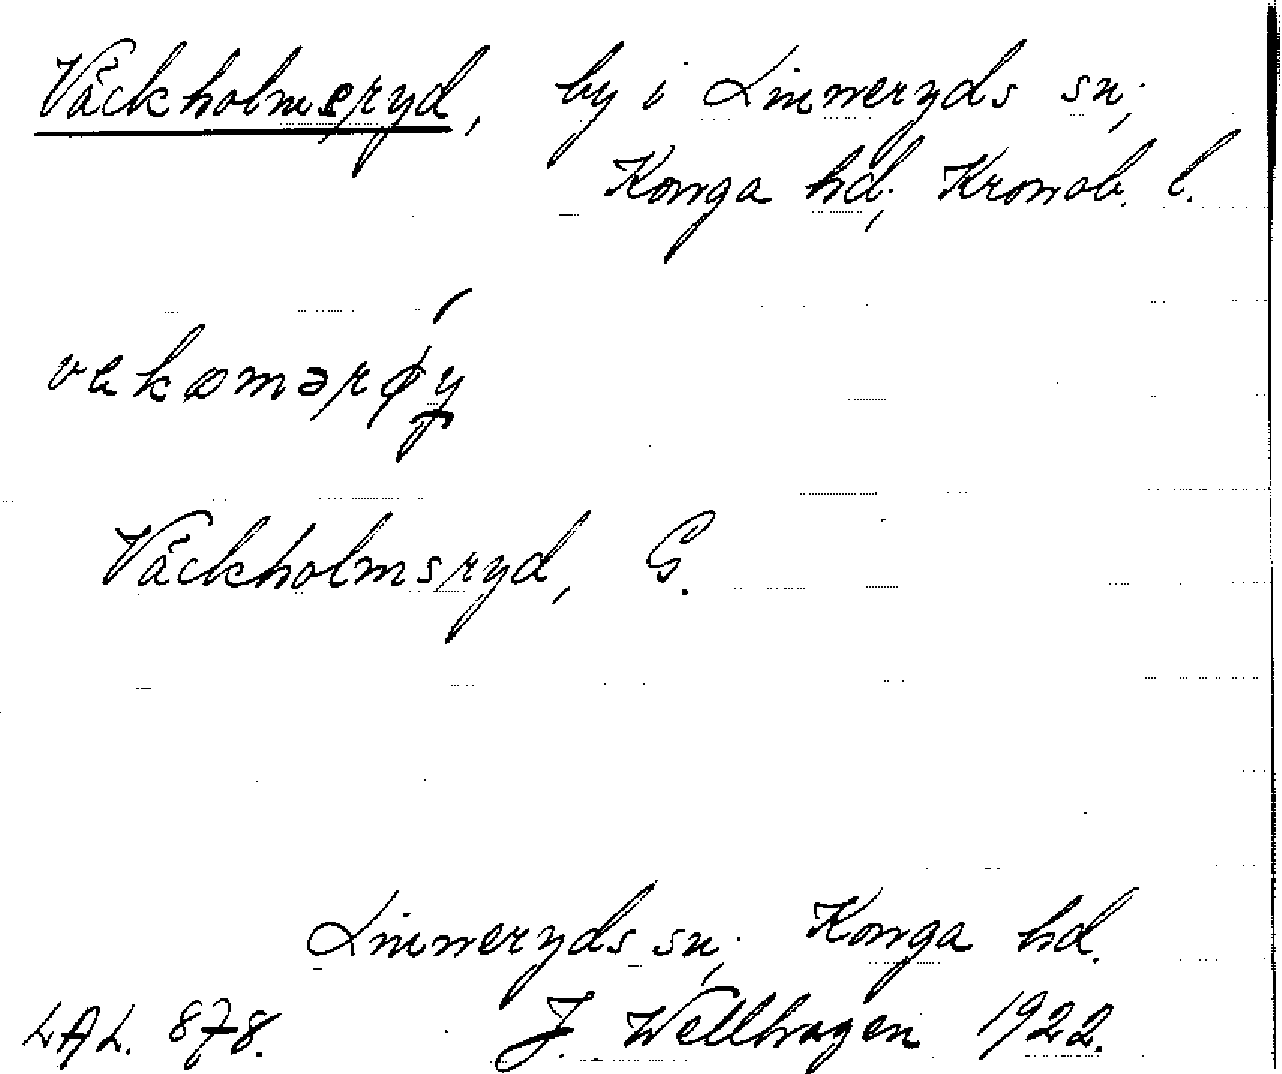 Väckholmsryd, by i Linneryds sn,
Konga hd, Kronob. l.
Väckholmsryd, G.
Linneryds sn, Konga hd.
LAL. 878. J. Wellhagen 1922.